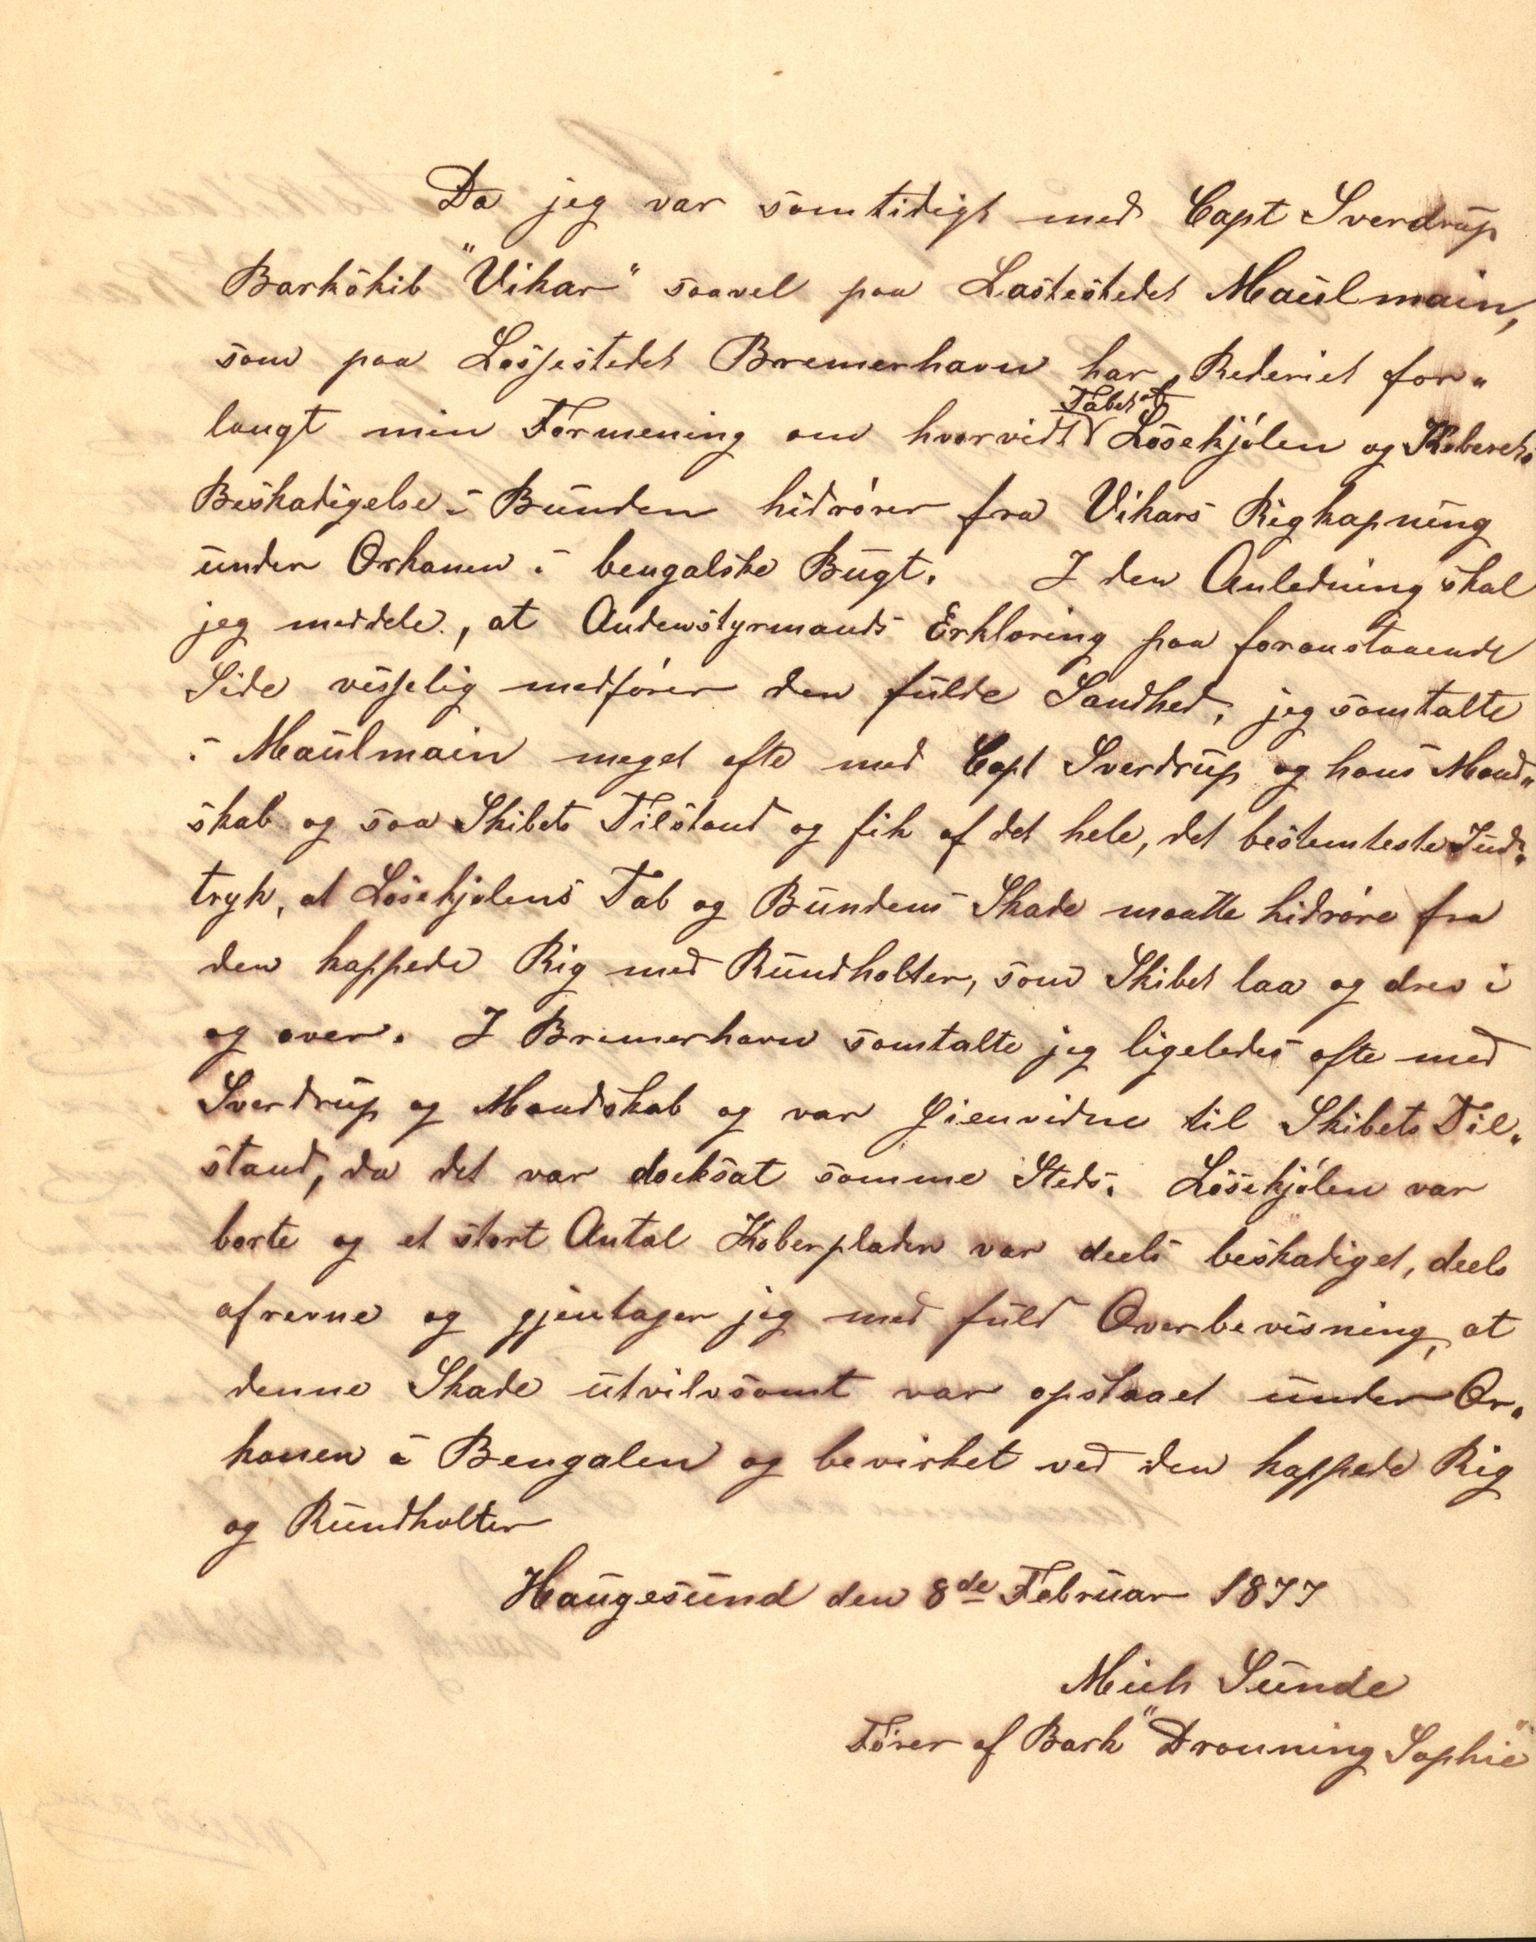 Da jeg var samtidigt med Capt Sverdrup
Barkskib "Vikar" saavel paa Lastestedet Maulmain,
som paa Lossestedet Bremerhavn har Rederiet for„
langt min Formening om hvorvidt Tabet af Løsekjølen og Koberets
Beskadigelse i Bunden hidrører fra Vikars Rigkapning
under Orkanen i bengalske Bugt. I den Anledning skal
jeg meddele, at Andenstyrmands Erklæring paa foranstaaende
Side visselig medfører den fulde Sandhed, jeg samtalte
i Maulmain meget ofte med Capt Sverdrup og hans Mand„
skab og saa Skibets Tilstand og fik af det hele, det bestemteste Ind„
tryk, at Løsekjølens Tab og Bundens Skade maatte hidrøre fra
den kappede Rig med Rundholter, som Skibet laa og drev i
og over. I Bremerhavn samtalte jeg ligeledes ofte med
Sverdrup og Mandskab og var Øienvidne til Skibets Til„
stand, da det var docksat samme Steds. Løsekjølen var
borte og et stort Antal Koberplader var deels beskadiget, deels
afrevne og gjentager jeg med fuld Overbevisning, at
denne Skade utvilvsomt var opstaaet under Or„
kanen i Bengalen og bevirket ved den kappede Rig
og Rundholter
Haugesund den 8de Februar 1877
Mich Sunde
Fører af Bark "Dronning Sophie"